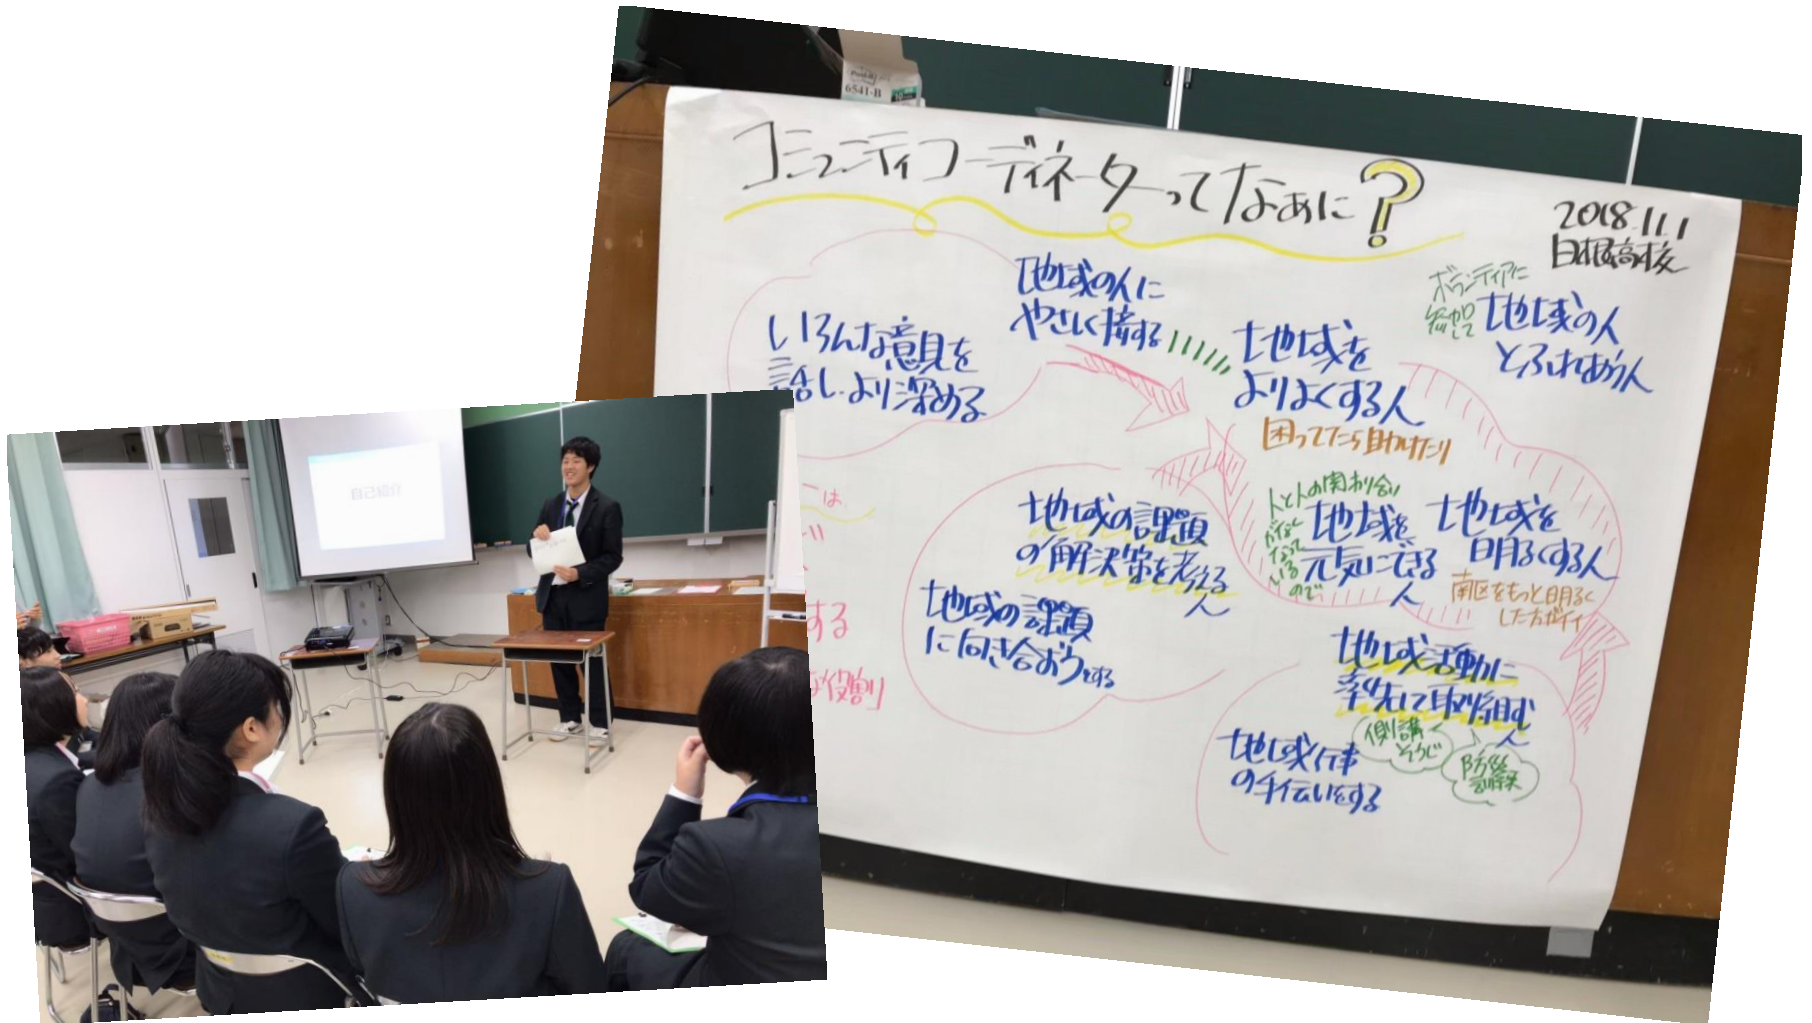 コミュニティコーディネーターってなぁに?
2018.11.1
白根高校
いろんな意見を
話し、より深める
地域の人に
やさしく接する
地域を
よりよくする人
困ってたら助けたり
ボランティアに
参加して
地域の人
とふれあう人
地域の課題
の解決策を考える
人
地域の課題
に向き合おうとする
人と人の関わり合い
がなく
なって
いる
ので
地域を
元気にできる
人
地域を
明るくする人
南区をもっと明るく
した方がイイ
地域活動に
率先して取り組む
人
側溝
そうじ
防災
訓練
地域行事
の手伝いをする
は、
する
な役割
自己紹介
Post-it
6541-B